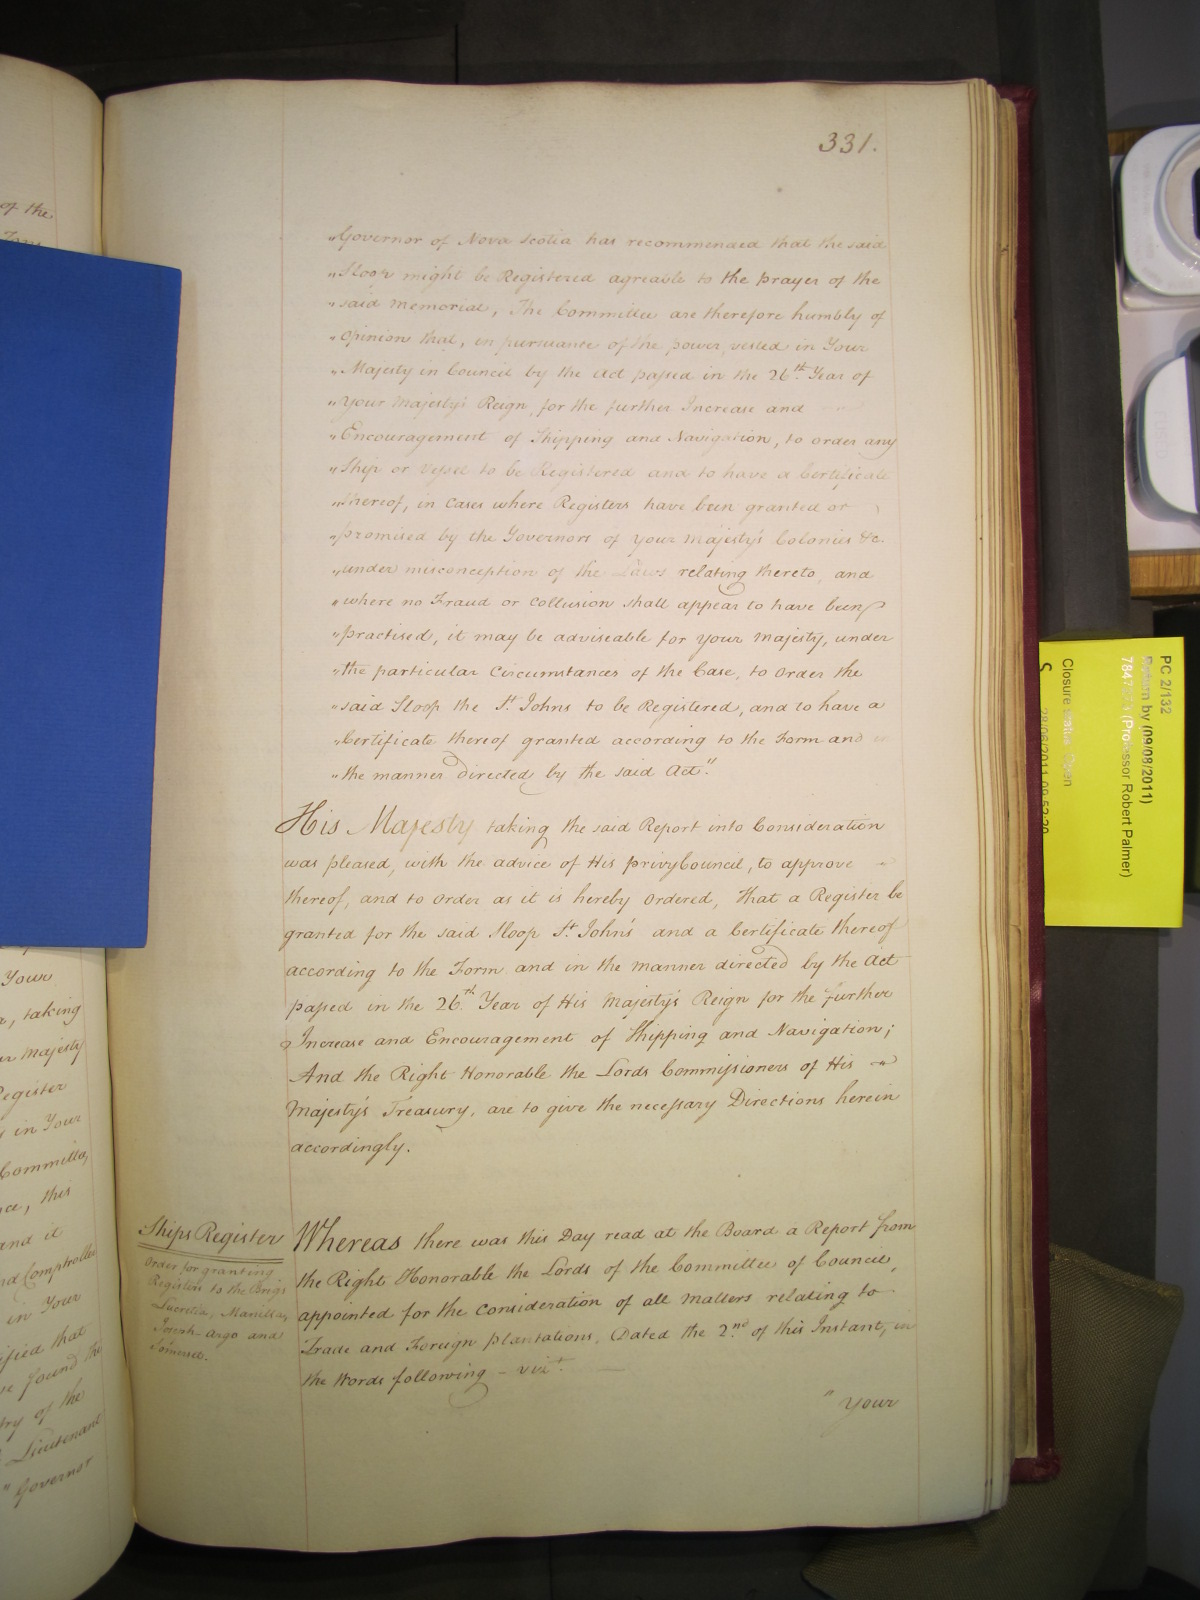 331.
"Governor of Nova Scotia has recommended that the said
"Sloop might be Registered agreable to the prayer of the
"said Memorial, The Committee are therefore humbly of
"Opinion that, in pursuance of the power vested in Your
"Majesty in Council by the Act passed in the 26th. Year of
"Your Majesty's Reign, for the further Increase and
"Encouragement of Shipping and Navigation, to order any
"Ship or Vessel to be Registered and to have a Certificate
"thereof, in Cases where Registers have been granted or
"promised by the Governors of your Majesty's Colonies &c.
"under misconception of the Laws relating thereto, and
"where no Fraud or Collusion shall appear to have been
"practised, it may be adviseable for your Majesty, under
"the particular Circumstances of the Case, to Order the
"said Sloop the St. Johns to be Registered, and to have a
"Certificate thereof granted according to the Form and in
"the manner directed by the said Act."
His Majesty taking the said Report into Consideration
was pleased, with the advice of His Privy Council, to approve
thereof, and to Order as it is hereby Ordered, That a Register be
granted for the said Sloop St. John's and a Certificate thereof
according to the Form and in the manner directed by the Act
passed in the 26th. Year of His Majesty's Reign for the further
Increase and Encouragement of Shipping and Navigation;
And the Right Honorable the Lords Commissioners of His
Majesty's Treasury, are to give the necessary Directions herein
accordingly.
Ships Register
Order for granting
Registers to the Brigs
Lucretia, Manilla,
Argo and
Somerset.
Whereas there was this Day read at the Board a Report from
the Right Honorable the Lords of the Committee of Council,
appointed for the Consideration of all Matters relating to
Trade and Foreign Plantations, Dated the 2nd. of this Instant, in
the Words following – vizt.
"Your
of the
Your
taking
Majesty
Register
in Your
Committee,
this
and it
Comptroller
in Your
that
found the
of the
Lieutenant
"Governor
PC 2/132
Return by (09/08/2011)
(Professor Robert Palmer)
Closure status: Open
S
28/06/2011 09:52:20